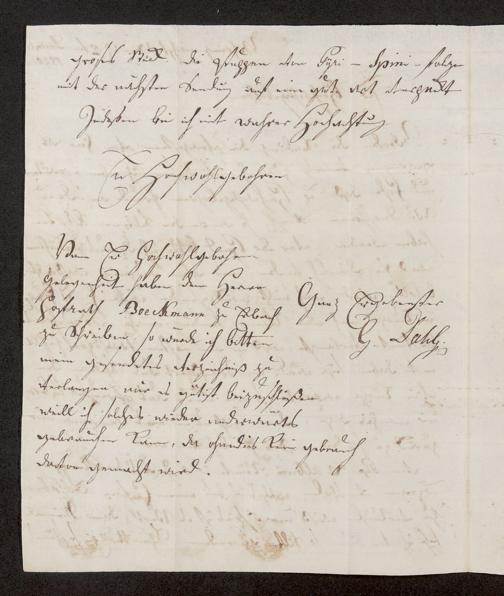 großes Bild die Puppen von Pyri - Spini - folgen
mit der nächsten Sendung auf eine gute art verpackt
Indeßen bin ich mit wahrer Hochachtung
Eu Hochwohlgebohren
Wenn Eu Hochwohlgebohren
gelegenheit haben dem Herrn
Hofrath Boeckmann zu
zu Schreiben so werde ich bitten
mein gesendetes Verzeichniß zu
verlangen und es gütigst beizuschließen
weill ich solches wieder anderwärts
gebrauchen kann, da ohnedies kein gebrauch
davon gemacht wird.
Ganz Ergebenster
G. Dahl.